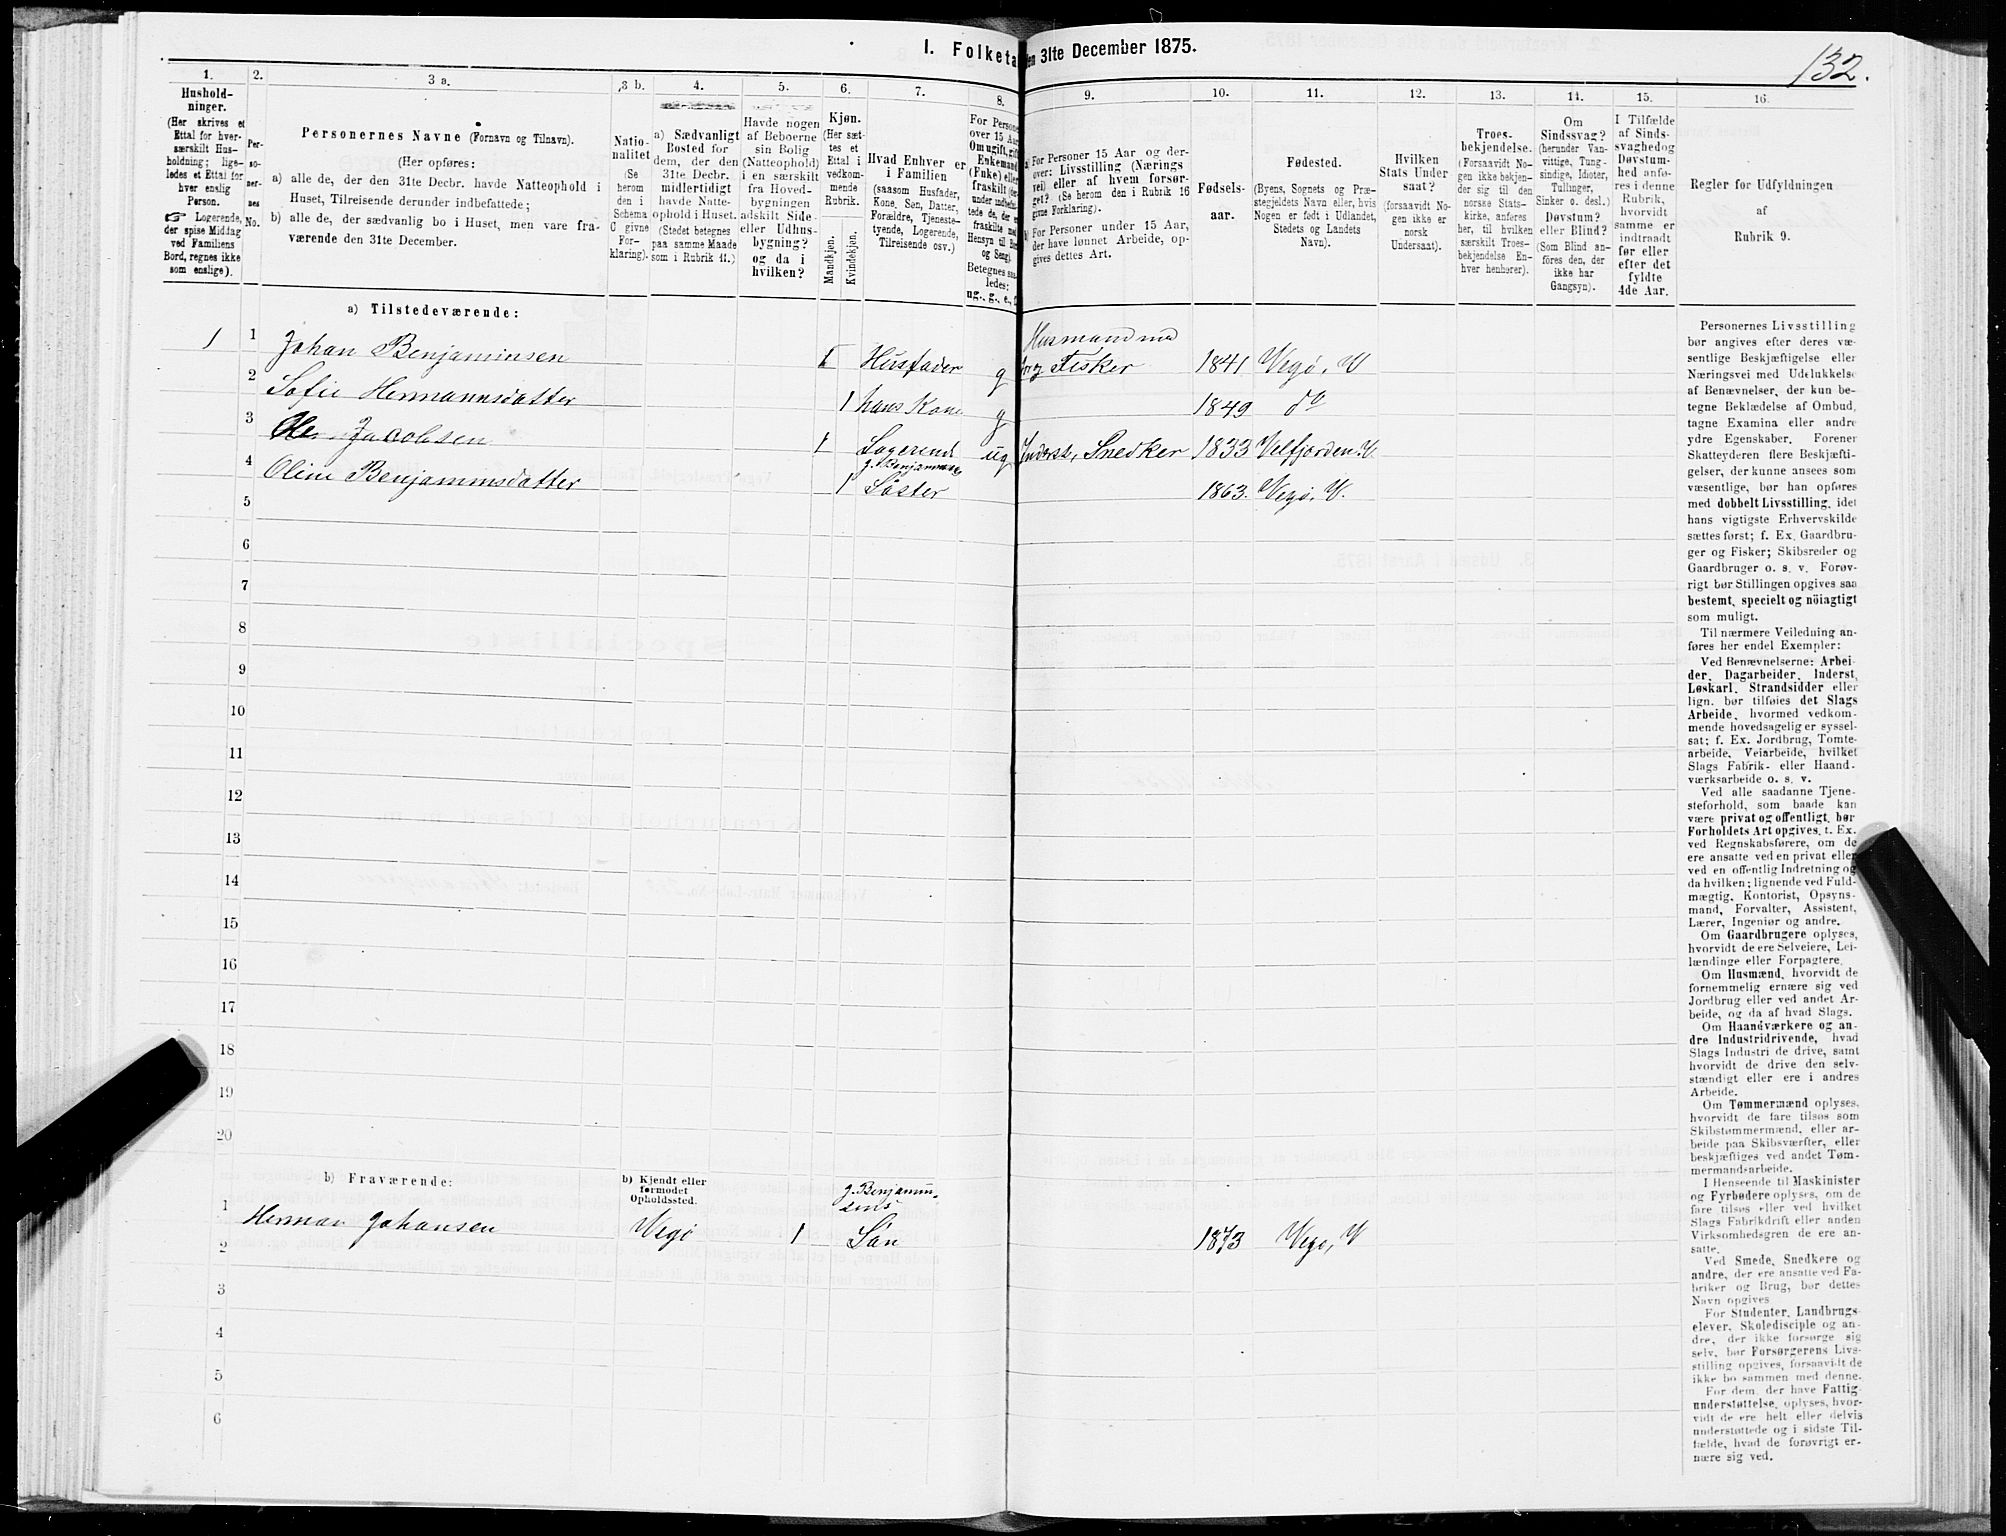 I. Folketa
en 31te December 1875.
132.
1. 2. 3 a. 3 b. 4. 5. 6. 7. 8. 9. 10. 11. 12. 13. 14. 15. 16.
Hushold-
ninger.
(Her skrives et
Ettal for hver-
særskilt Hus-
holdning; lige-
ledes et Ettal for
hver enslig
Person.
☞ Logerende,
der spise Middag
ved Familiens
Bord, regnes ikke
som enslige).
Per-
so-
ner-
nes
No.
Personernes Navne (Fornavn og Tilnavn).
(Her opføres:
a) alle de, der den 31te Decbr. havde Natteophold i
Huset, Tilreisende derunder indbefattede;
b) alle de, der sædvanlig bo i Huset, men vare fra-
værende den 31te December.
Natio-
nalitet
(Se
herom
den i
Schema
C givne
For-
klaring).
a) Sædvanligt
Bosted for
dem, der den
31te Decbr.
midlertidigt
havde Natte-
ophold i Huset.
(Stedet betegnes
paa samme Maade
som i Rubrik 11.)
Havde nogen
af Beboerne
sin Bolig
(Natteophold)
i en særskilt
fra Hoved-
bygningen
adskilt Side-
eller Udhus-
bygning?
og da i
hvilken?
Kjøn.
(Her sæt-
tes et
Ettal i
vedkom-
mende
Rubrik.
Mandkjøn.
Kvindekjøn.
Hvad Enhver er
i Familien
(saasom Husfader,
Kone, Søn, Datter,
Forældre, Tjeneste-
tyende, Logerende,
Tilreisende osv.)
For Persone
over 15 Aar
Om ugift, gift
Enkemand
(Fnke) eller
fraskilt (der
under indbefat-
tede de, der e
fraskilte med
Hensyn til Bo
og Seng).
Betegnes saa-
ledes:
ug., g., e., f.
a For Personer 15 Aar og der-
over: Livsstilling (Nærings
vei) eller af hvem forsør-
get? (Se herom den i Rubrik 16
givne Forklaring).
b For Personer under 15 Aar,
der have lønnet Arbeide, op-
gives dettes Art.
Fødsels-
aar.
Fødested.
(Byens, Sognets og Præ-
stegjeldets Navn eller, hvis
Nogen er født i Udlandet,
Stedets og Landets
Navn).
Hvilken
Stats Under
saat?
(forsaavidt No-
gen ikke er
norsk
Undersaat).
Troes-
bekjendelse.
(Forsaavidt No-
gen ikke bekjen-
der sig til den
norske Stats-
kirke, anføres
her, til hvilken
særskilt Troes-
bekjendelse En-
hver henhører).
Om
Sindssvag?
(herunder Van-
vittige, Tung-
sindige, Idioter,
Tullinger,
Sinker o. desl.)
Døvstum?
eller Blind?
(Som Blind an-
føres den, der
ikke har
Gangsyn).
I Tilfælde
af Sinds-
svaghed og
Døvstum-
hed anfø-
res i denne
Rubrik,
hvorvidt
samme er
indtraadt
før eller
efter det
fyldte
4de Aar.
Regler for Udfyldningen
af
Rubrik 9.
a) Tilstedeværende:
1 1 Johan Benjaminsen 1 Husfader g Husmand med
Jord Fisker 1841 Vegø, V
2 Sofie Hermannsdatter 1 hans Kone g 1849 do
3 Ole Jacobsen 1 Logerend ug Inderst, Snedker 1833 Velfjorden V.
4 Oline Benjaminsdatter 1 J. Benjaminsens
Søster 1863. Vegø, V.
5
6
7
8
9
10
11
12
13
14
15
16
17
18
19
20
b) Fraværende:
b) Kjendt eller
formodet
Opholdssted.
J. Benjamin-
sens
1 Herman Johansen Vegø 1 Søn 1873 Vegø, V
2
3
4
5
6
Personernes Livsstilling
bør angives efter deres væ-
sentlige Beskjæftigelse eller
Næringsvei med Udelukkelse
af Benævnelser, der kun be-
tegne Beklædelse af Ombud,
tagne Examina eller andre
ydre Egenskaber. Forener
Skatteyderen flere Beskjæfti-
gelser, der kunne ansees som
væsentlige, bør han opføres
med dobbelt Livsstilling, idet
hans vigtigste Erhvervskilde
sættes først; f. Ex. Gaardbru-
ger og Fisker; Skibsreder og
Gaardbruger o. s. v. Forøv-
rigt bør Stillingen opgives saa
bestemt, specielt og nöiagtigt
som muligt.
Til nærmere Veiledning an-
føres her endel Exempler:
Ved Benævnelserne: Arbei-
der, Dagarbeider, Inderst,
Løskarl, Strandsidder eller
lign. bør tilføies det Slags
Arbeide, hvormed vedkom-
mende hovedsagelig er syssel-
sat; f. Ex. Jordbrug, Tomte-
arbeide, Veiarbeide, hvilket
Slags Fabrik- eller Haand-
værksarbeide o. s. v.
Ved alle saadanne Tjene-
steforhold, som baade kan
være privat og offentligt, bør
Forholdets Art opgives, t. Ex.
ved Regnskabsførere, om de
ere ansatte ved en privat eller
ved en offentlig Indretning og
da hvilken; lignende ved Fuld-
mægtig, Kontorist, Opsyns-
mand, Forvalter, Assistent,
Lærer, Ingeniør og andre.
Om Gaardbrugere oplyses,
hvorvidt de ere Selveiere, Lei-
lændinge eller Forpagtere.
Om Husmænd, hvorvidt de
fornemmelig ernære sig ved
Jordbrug eller ved andet Ar-
beide, og da af hvad Slags.
Om Haandværkere og an-
dre Industridrivende, hvad
Slags Industri de drive, samt
hvorvidt de drive den selv-
stændigt eller ere i andres
Arbeide.
Om Tømmermænd oplyses,
hvorvidt de fare tilsøs som
Skibstømmermænd, eller ar-
beide paa Skibsværfter, eller
beskjæftiges ved andet Tøm-
mermandsarbeide.
I Henseende til Maskinister
og Fyrbødere oplyses, om de
fare tilsøs eller ved hvilket
Slags Fabrikdrift eller anden
Virksomhedsgren de ere an-
satte.
Ved Smede, Snedkere og
andre, der ere ansatte ved Fa-
briker og Brug, bør dettes
Navn opgives
For Studenter, Landbrugs-
elever, Skoledisciple og an-
dre, der ikke forsørge sig
selv, bør Forsørgerens Livs-
stilling opgives, forsaavidt de
ikke bo sammen med denne.
For dem, der have Fattig-
understøttelse, oplyses, hvor-
vidt de ere helt eller delvis
understøttede og i sidste Til-
fælde, hvad de forøvrigt er-
nære sig ved.